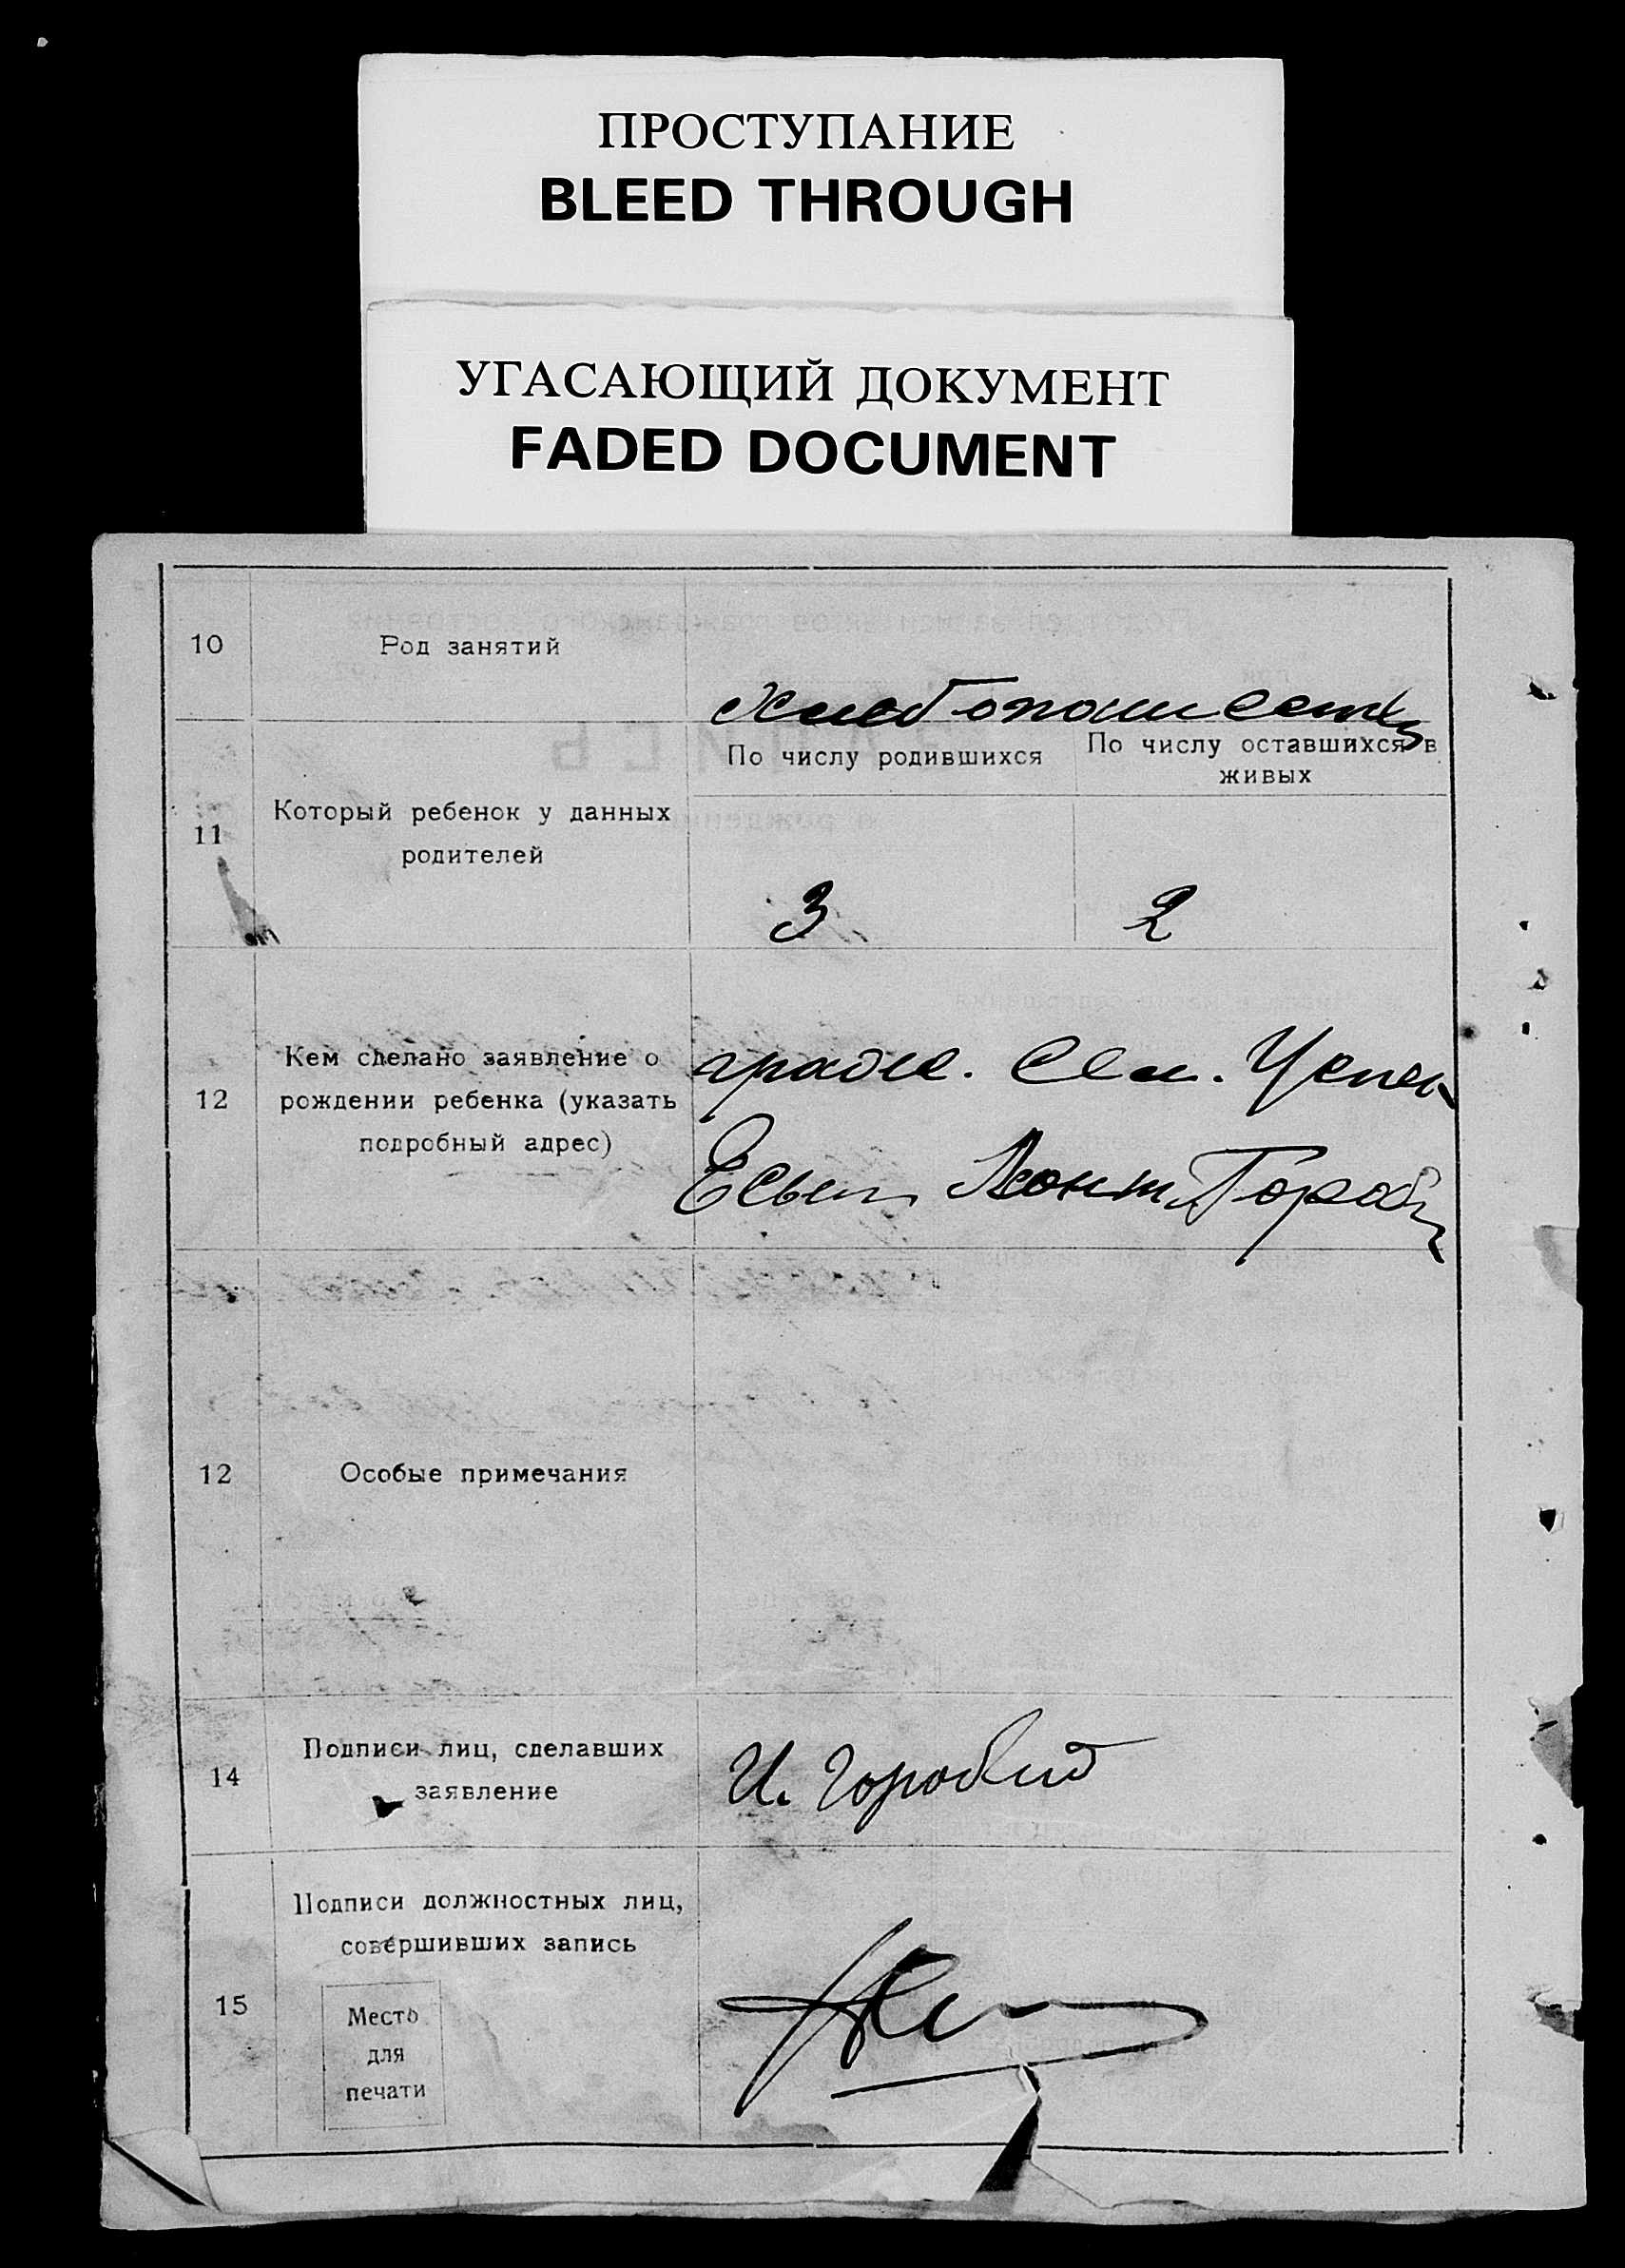 ПРОСТУПАНИЕ
BLEED THROUGH
УГАСАЮЩИЙ ДОКУМЕНТ
FADED DOCUMENT
10
Род занятий
11
Который ребенок у данных
родителей
По числу родившихся
По числу оставшихся в
живых
3
2
12
Кем сделано заявление о
рождении ребенка (указать
подробный адрес)
12
Особые примечания
14
Подписи лиц, сделавших
заявление
И. Горобий
15
Подписи должностных лиц,
совершивших запись
Место
для
печати